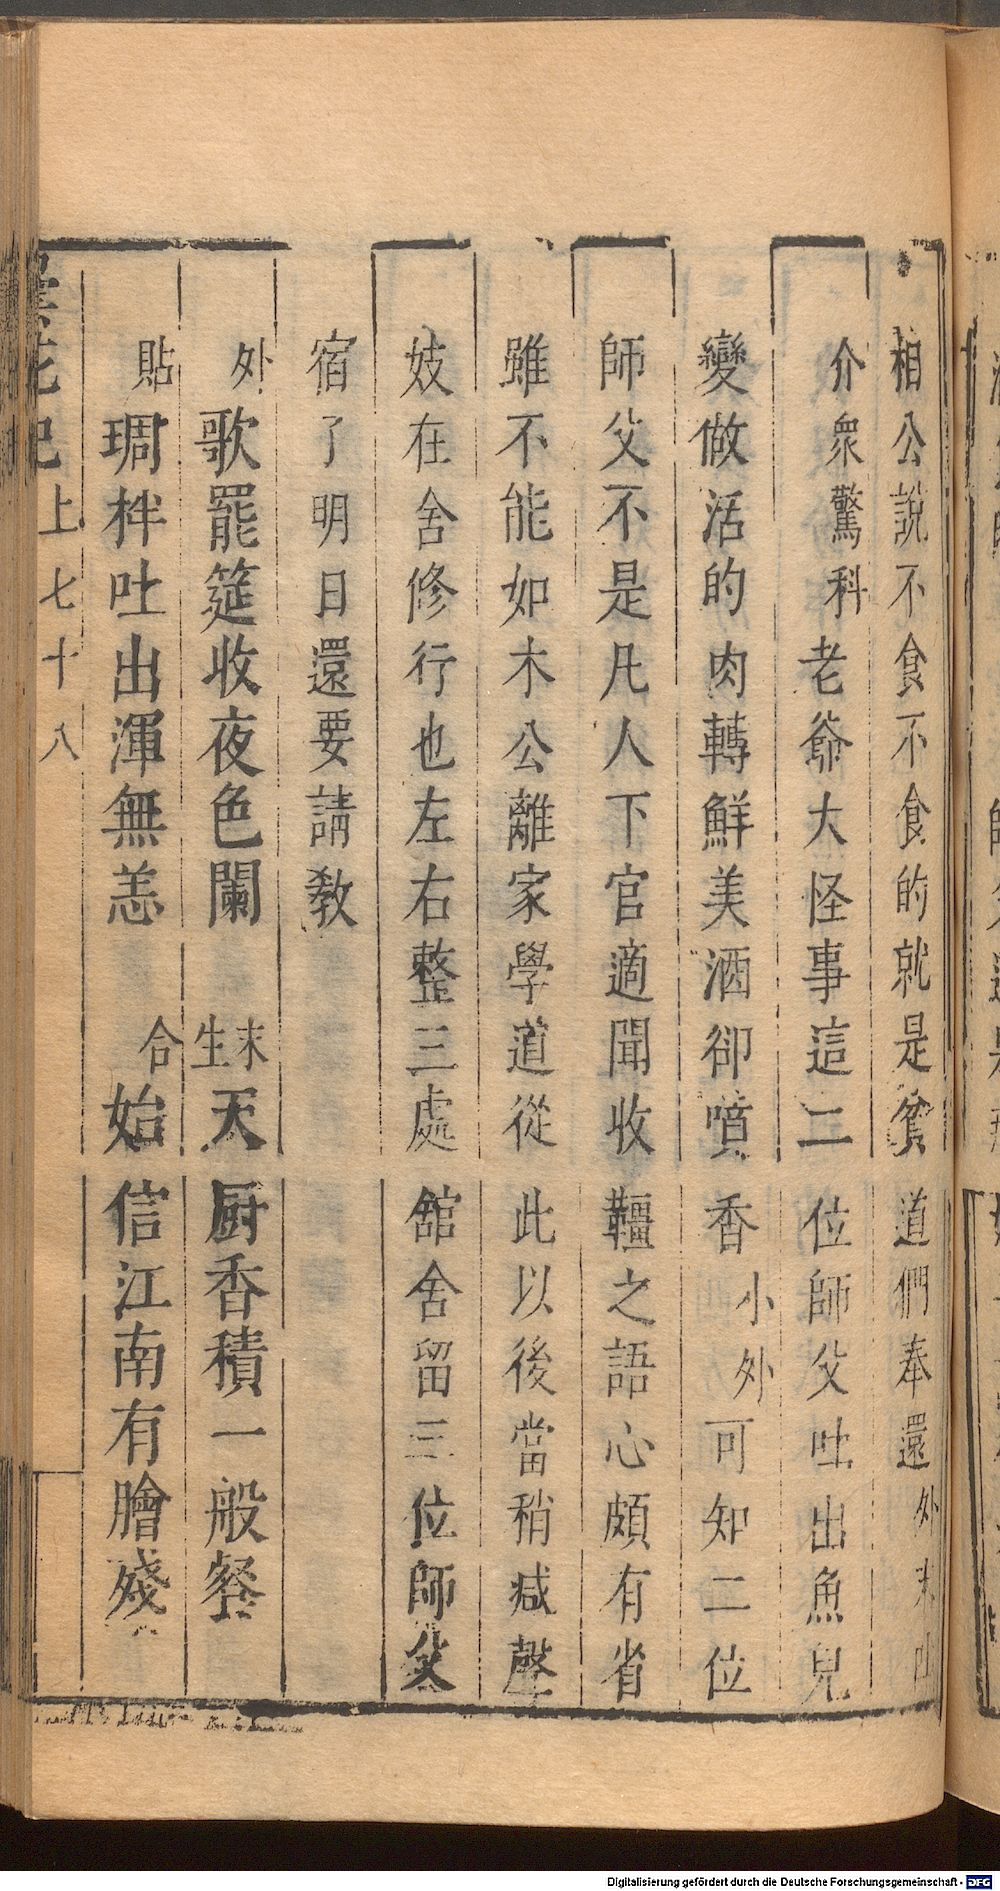 相公說不食不食的就是貧道們奉還外末吐
介衆驚科老爺大怪事這二位師父吐出魚兒
變做活的肉轉鮮美酒卻噴香小外可知二位
師父不是凡人下官適聞收韁之語心頗有省
雖不能如木公離家學道從此以後當稍减聲
妓在舍修行也左右整三處舘舍留三位師父
宿了明日還要請教
外歌罷筵收夜色闌末生天厨香積一般餐
貼琱柈吐出渾無恙合始信江南有膾殘
曇花記上七十八
Digitalisierung gefördert durch die Deutsche Forschungsgemeinschaft - DFG